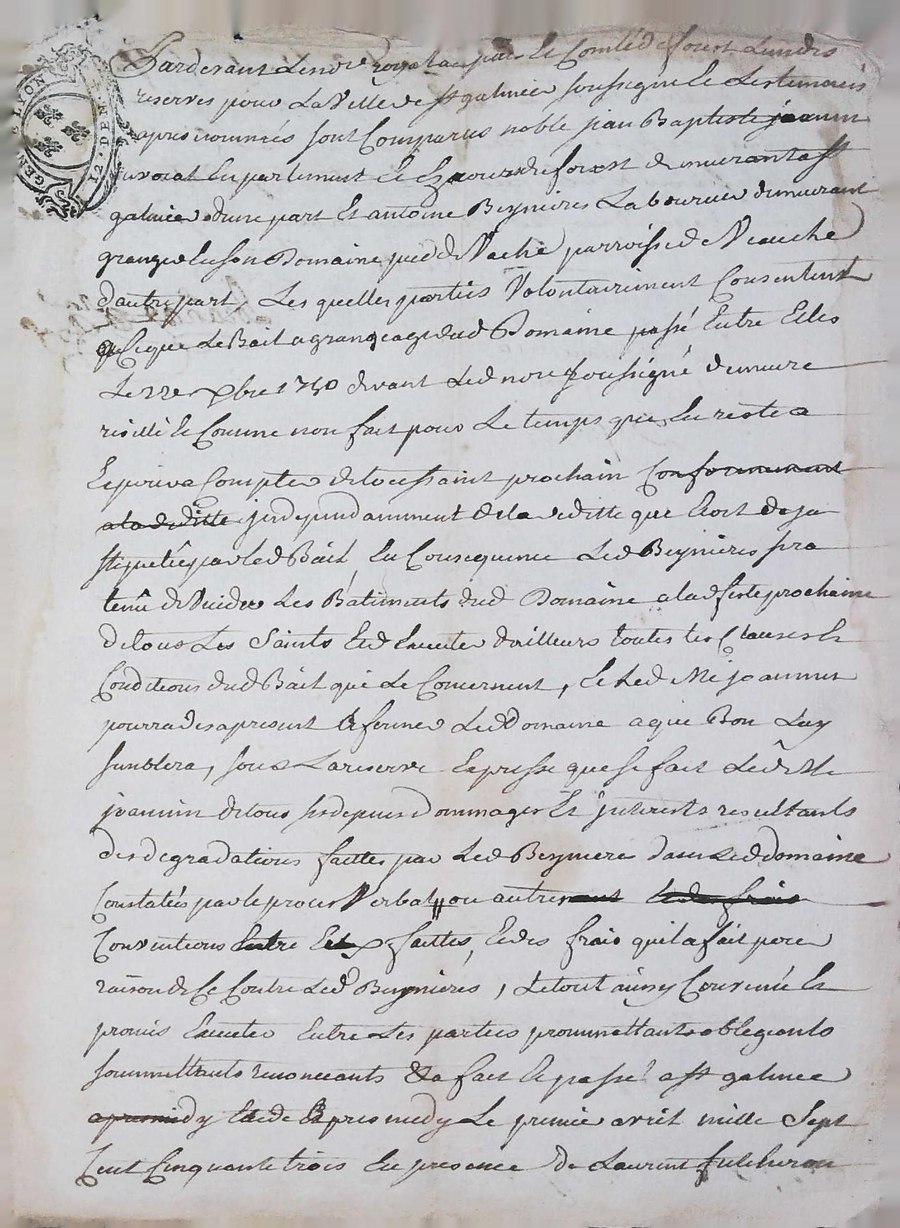 GEN. LYON
T. DE. N.
Pardevant le no.re royal au pais et Comté de forest l'un des
reservés pour la Ville de st galmier soussigné et les temoins
apres nommés sont Comparus noble jean Baptiste joannin
avocat en parlement et ez cours de forest demeurant a st
galmier d'une part et antoine Beynieres Laboureur demeurant
granger en son Domaine de Vaché parroisse de Veauche
d'autre part, Les quelles parties Volontairement Consentent
que Le Bail a grangeage dud Domaine passé entre Elles
Le xbre 1750 devant Led no.re soussigné demeure
resilié et Comme non fait pour Le temps qui en reste a
Expirer a Compter de toussaint prochain Conformement
a la deditte independamment de la deditte que etoit deja
stipulée par led Bail, En Consequence Led Beynieres sera
tenû de Vuider Les Bâtiments dud Domaine a lad feste prochaine
de tous Les Saints et d'executer d'ailleurs toutes les Clauses et
Conditions dud Bail qui Le Concernent, et Led Me joannin
pourra des apresent affermer Led Domaine a qui Bon Luy
semblera, sous La reserve Expresse que se fait Led
joannin de tous ses depens dommages et interests resultants
des degradations faittes par Led Beyniere dans Led domaine
Constatées par le procès Verbal ou autre
Conventions Entre faittes, et des frais qu'il a fait pour
raison de Ce Contre Led Beynieres, Le tout ainsy Convenû et
promis Executer Entre Les parties promettants obligeants
soummettants renonceants &a fait et passé a st galmier
apres midy Le premier avril mille Sept
Cent Cinquante trois En presence de Laurent fulcheron